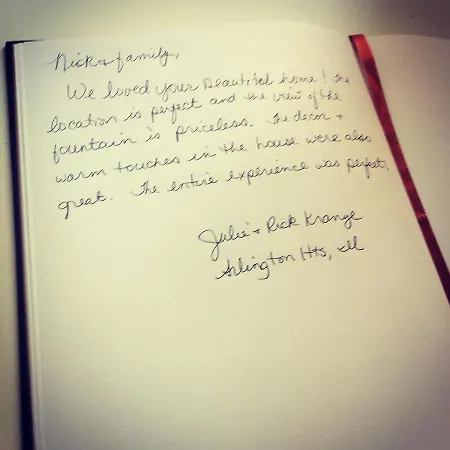 Nick + family,
We loved your beautiful home! The
location is perfect and the view of the
fountain is priceless. The decor +
warm touches in the house were also
great. The entire experience was perfect.
Julie + Rick Krange
Arlington Hts, Ill